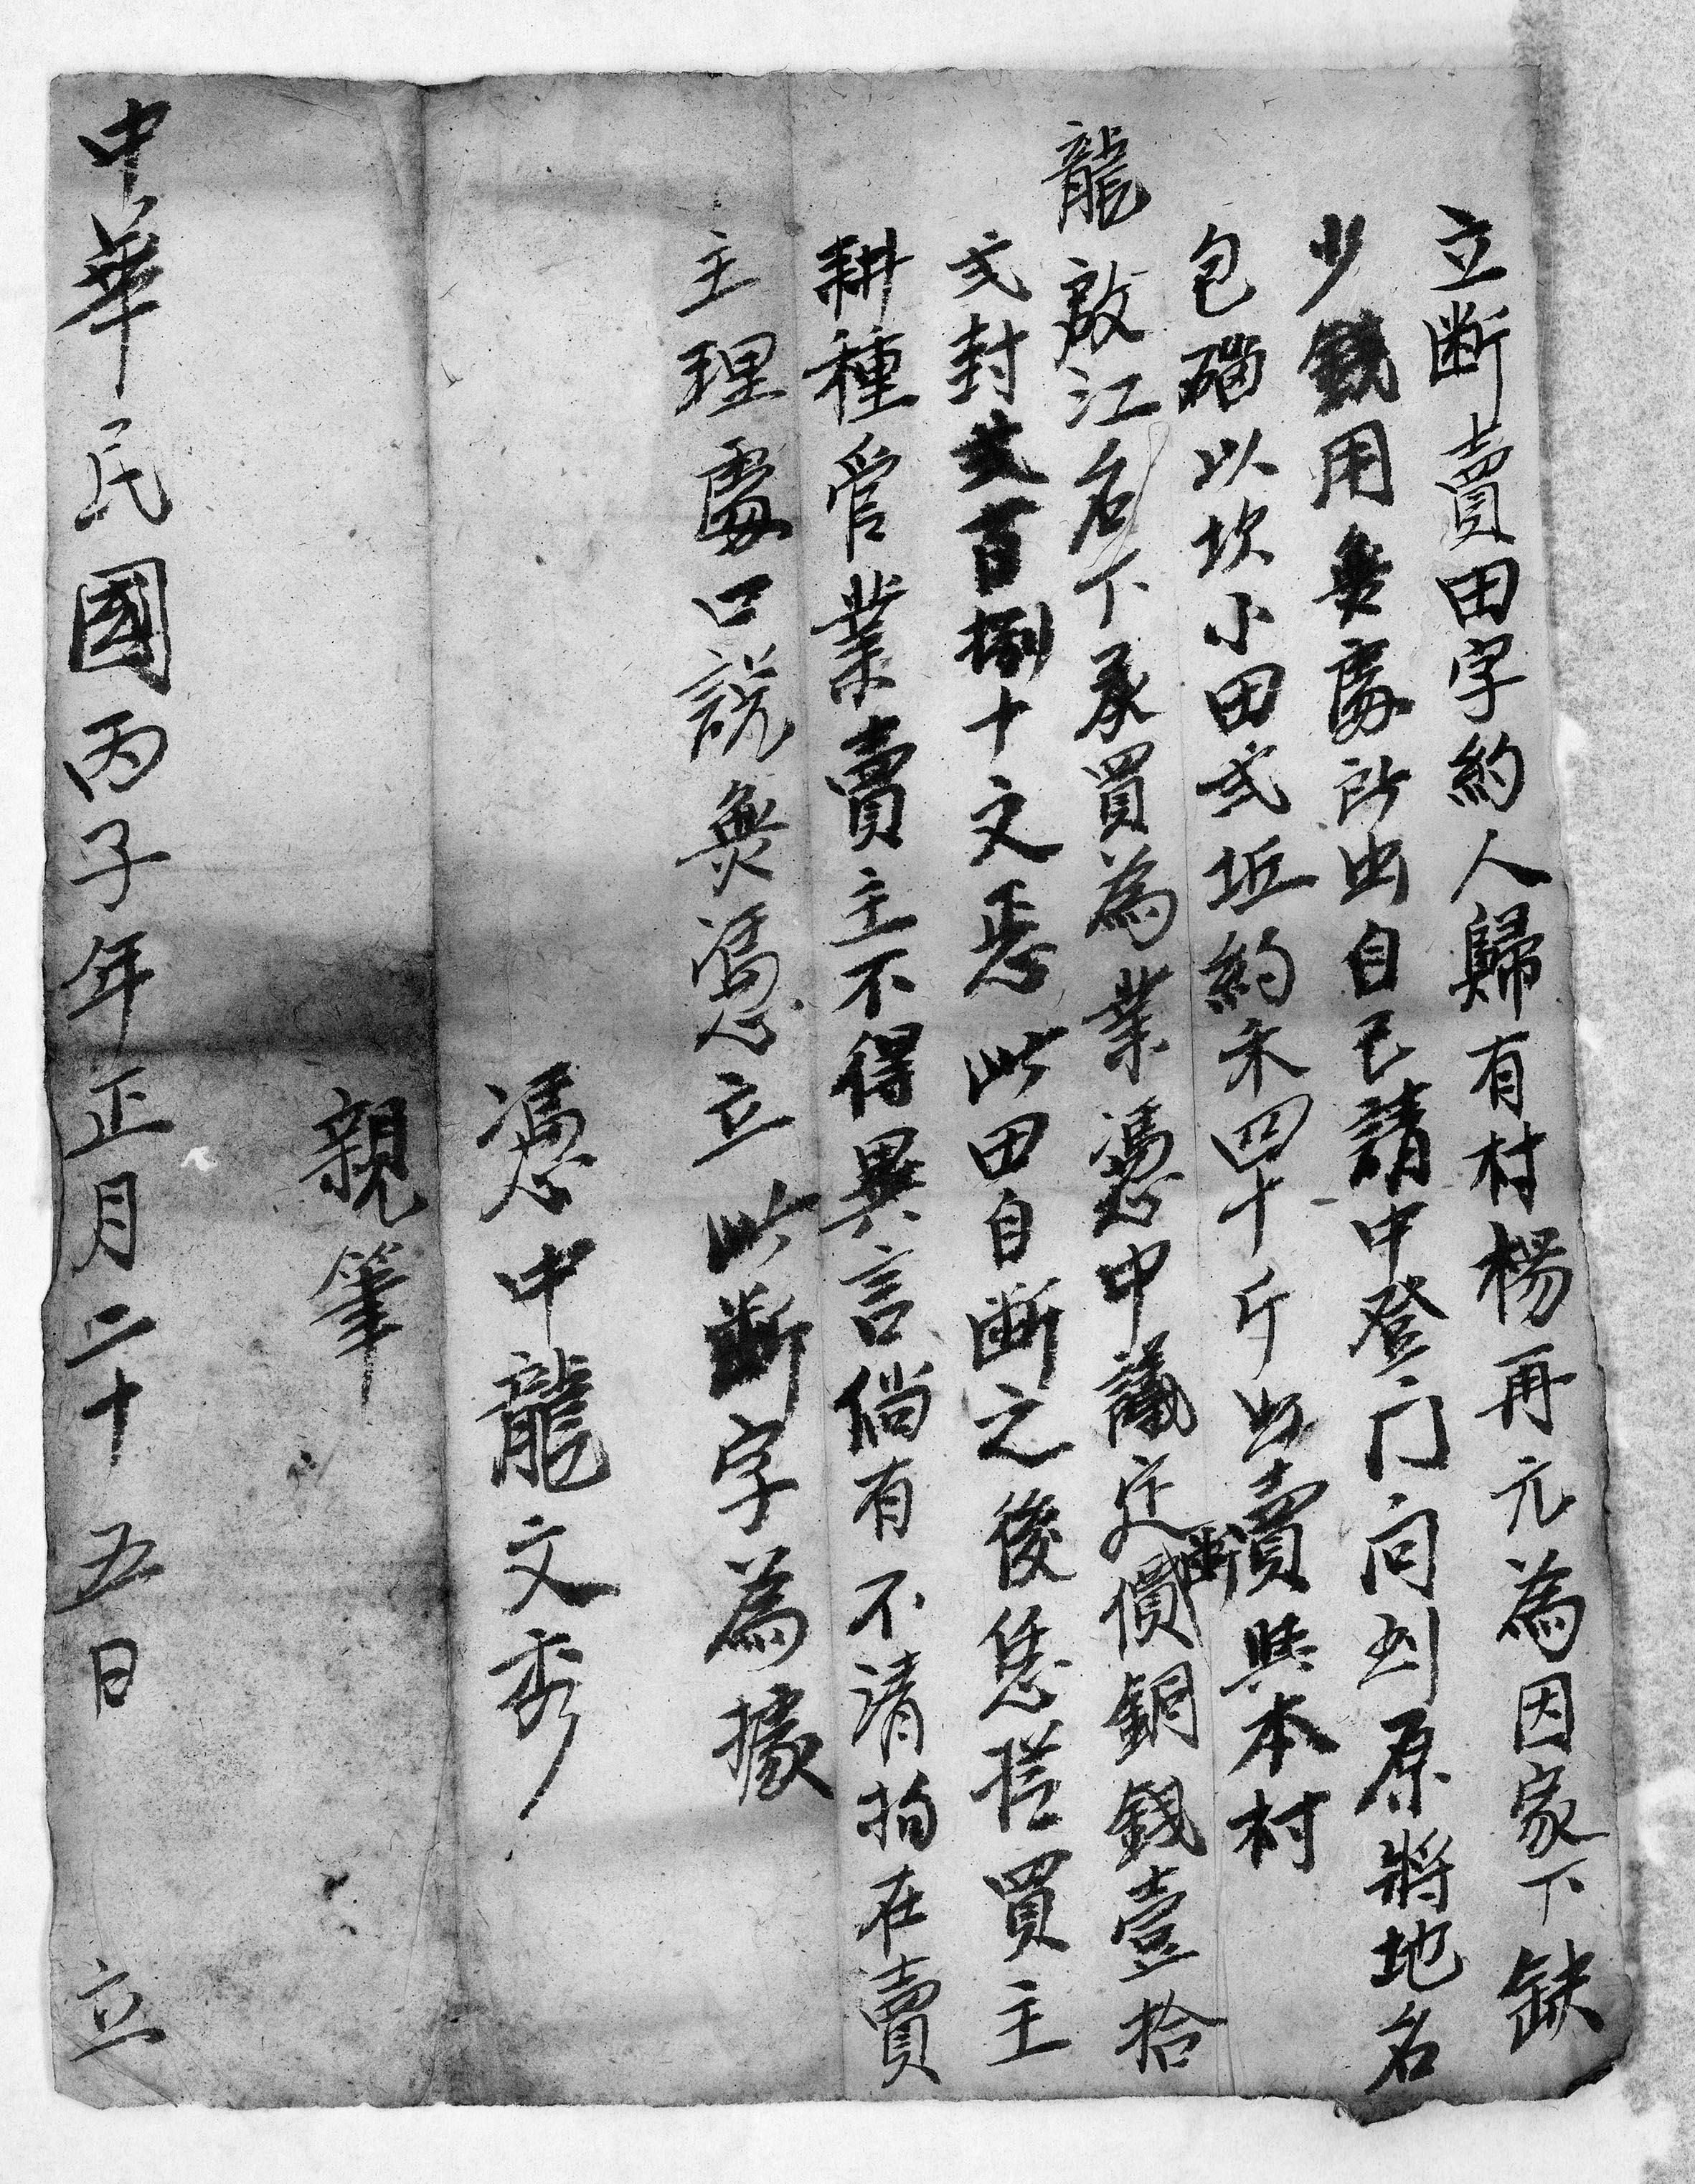 立断賣田字約人歸有村楊再元為因家下缺
少錢用無處所出自己請中登门问到原將地名
包磘以坎小田弍坵約禾四十斤出断賣與本村
龍啟江名下承買為業憑中議定價銅錢壹拾
弍封弍百捌十文悉此田自断之後恁從買主
耕種管業賣主不得異言倘有不清拘在賣
主理處口説無憑立此断字為據
憑中龍文秀
親筆
中華民國丙子年正月二十五日 立